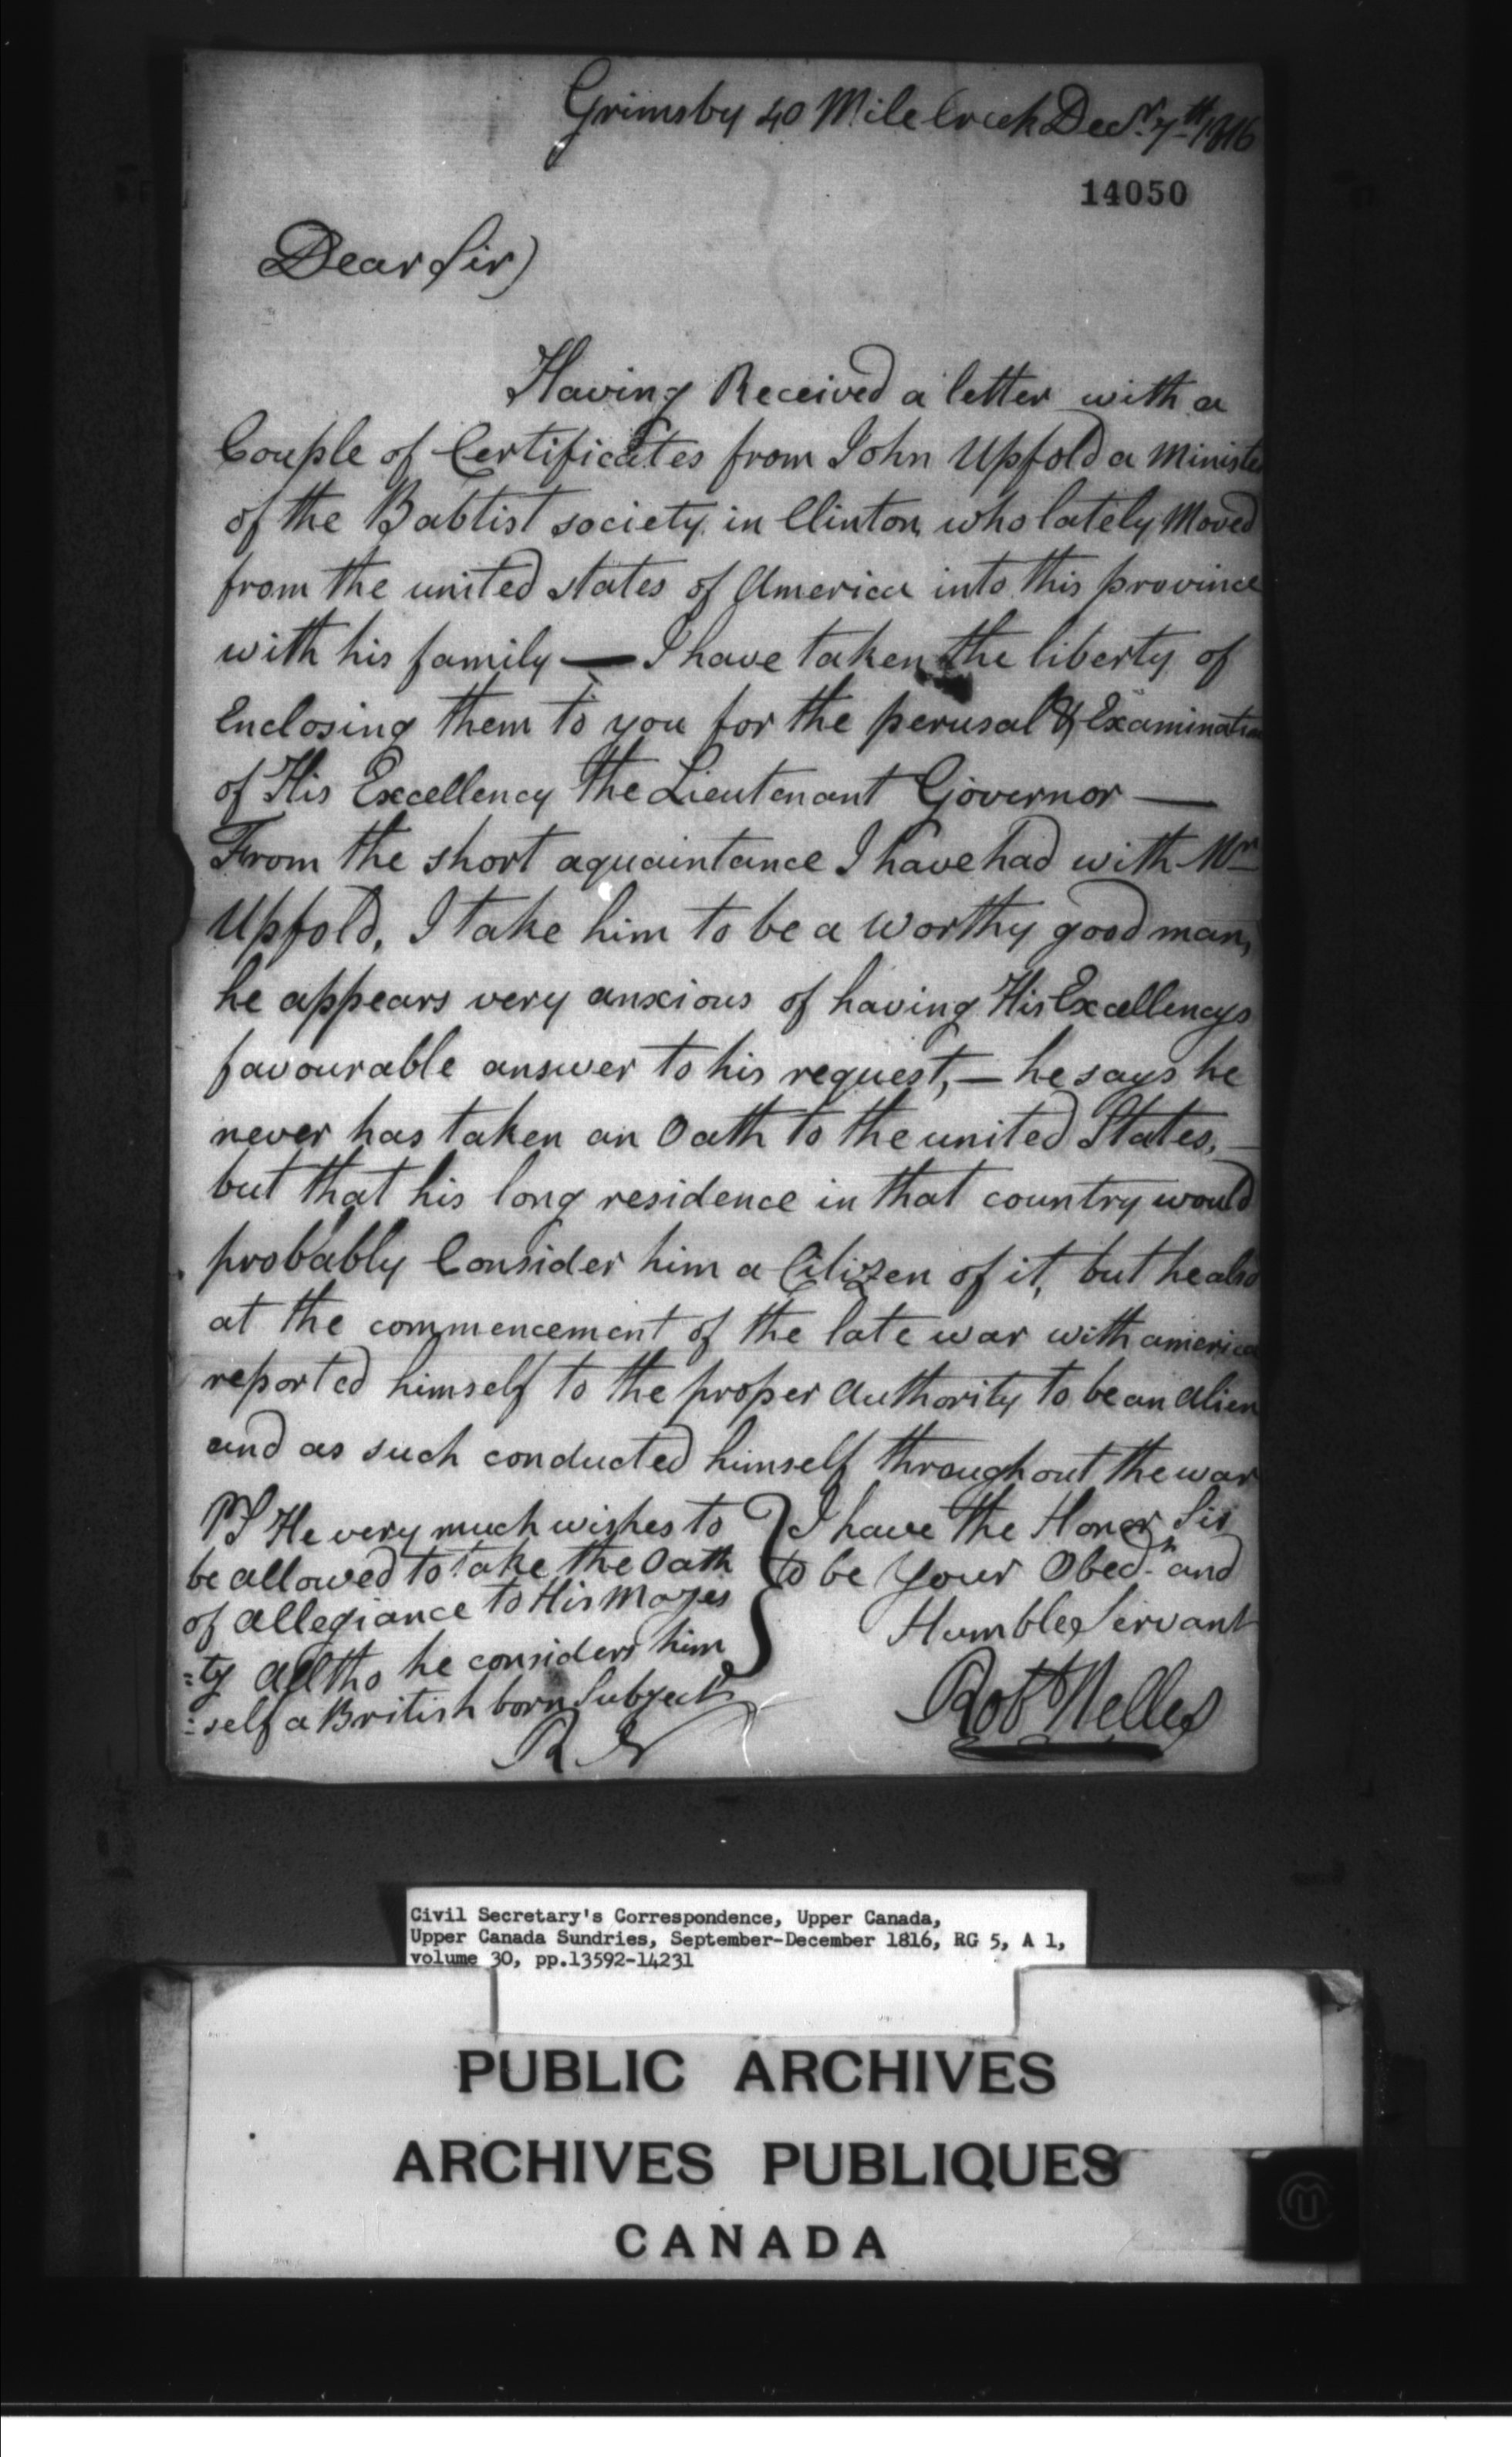 Grimsby 40 Mile Creek Decr. 7th 1816
14050
Dear Sir)
Having Received a letter with a
Couple of Certificates from John Upfold a Ministe
of the Babtist society in Clinton who lately Moved
from the united states of America into this province
with his family — I have taken the liberty of
Enclosing them to you for the perusal & Examination
of His Excellency the Lieutenant Governor —
From the short aquaintance I have had with Mr
Upfold, I take him to be a worthy good man,
he appears very anxious of having His Excellencys
favourable answer to his request, — he says he
never has taken an Oath to the united States, —
but that his long residence in that country would
probably Consider him a Citizen of it, but he also
at the commencement of the late war with america
reported himself to the proper authority to be an alien
and as such conducted himself throughout the war
PS He very much wishes to
be allowed to take the Oath
of allegiance to His Majes
=ty altho he considers him
=self a British born Subject
R N
I have the Honor Sir
to be your Obedn and
Humble Servant
Robt Nelles
Civil Secretary's Correspondence, Upper Canada,
Upper Canada Sundries, September-December 1816, RG 5, A 1,
volume 30, pp.13592-14231
PUBLIC ARCHIVES
ARCHIVES PUBLIQUES
CANADA